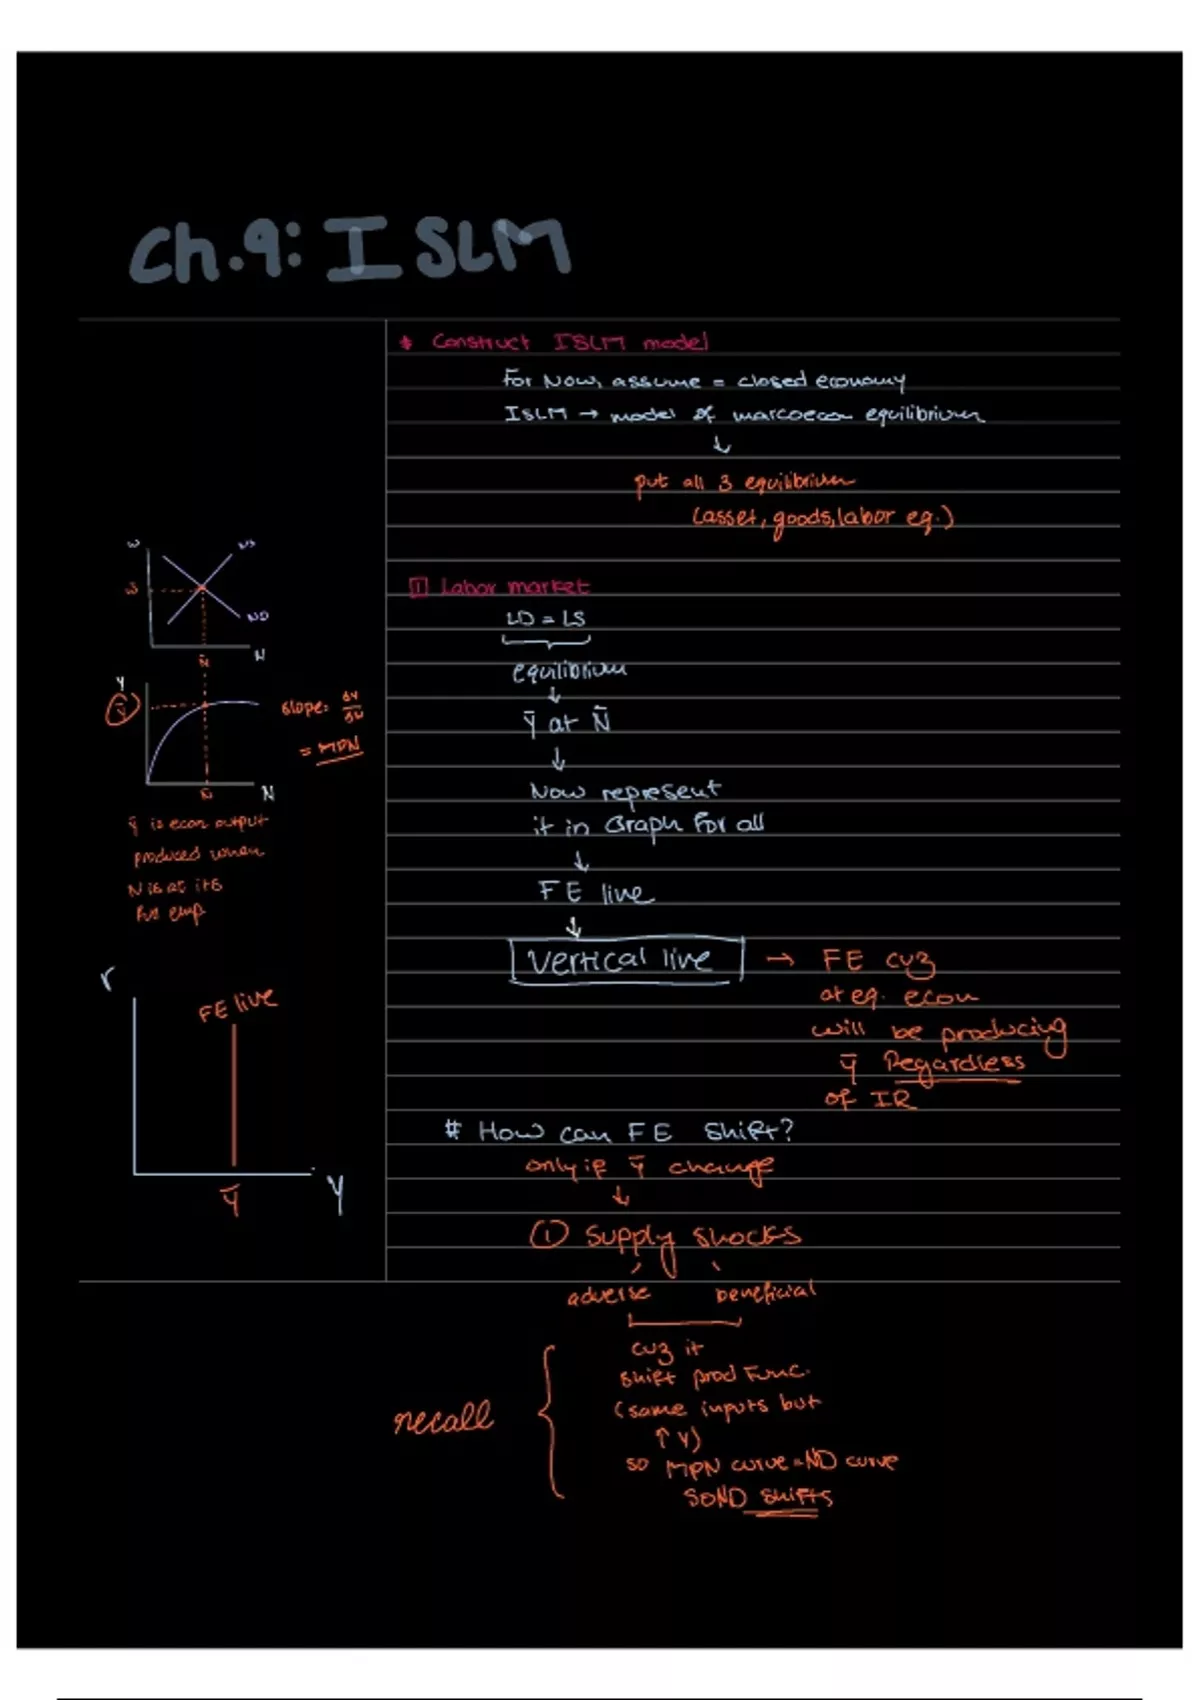 Ch.9: ISLM
* Construct ISLM model
For Now, assume = closed economy
ISLM → model of marcoecon equilibrium
↓
put all 3 equilibrium
(asset, goods, labor eq.)
W
NS
W
ND
N̄
N
Y
Ȳ
slope: ΔY/ΔN
= MPN
N̄
N
Ȳ is econ output
produced when
N is at its
full emp
1 Labor market
LD = LS
equilibrium
↓
Ȳ at N̄
↓
Now represent
it in Graph for all
↓
FE line
↓
Vertical line → FE cuz
at eq. econ
will be producing
Ȳ Regardless
of IR
r
FE line
Ȳ
Y
# How can FE shift?
only if Ȳ change
↓
① Supply shocks
adverse beneficial
recall
cuz it
shift prod func.
(same inputs but
↑ Y)
so MPN curve = ND curve
so ND shifts